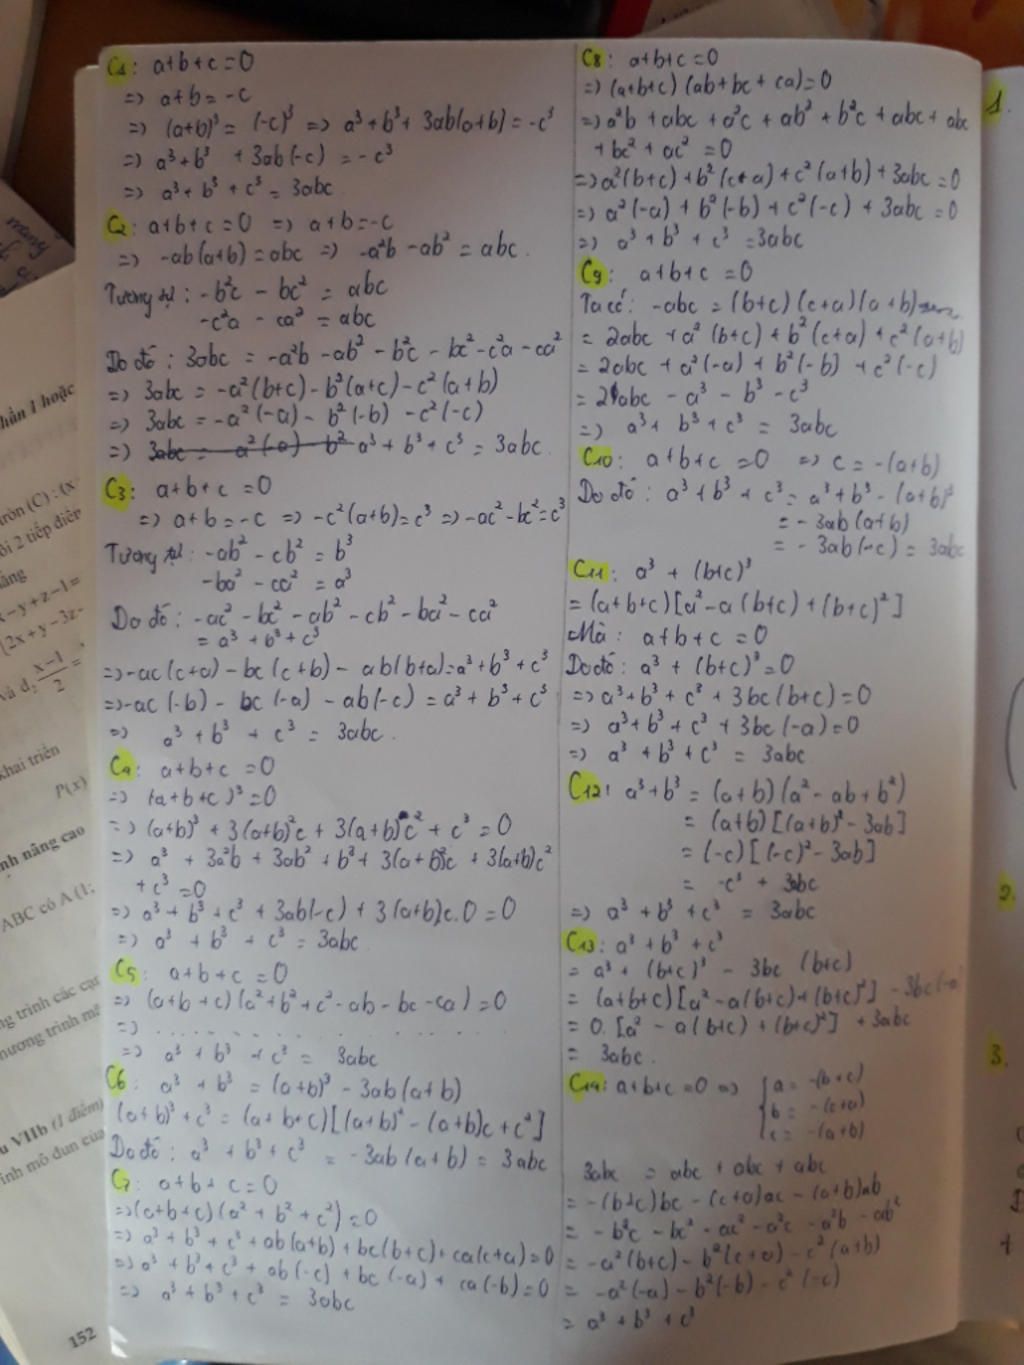 C1: a+b+c=0
=> a+b=-c
=> (a+b)³ = (-c)³ => a³+b³+3ab(a+b)=-c³
=> a³+b³ +3ab(-c) = -c³
=> a³+b³+c³=3abc
C2: a+b+c=0 => a+b=-c
=> -ab(a+b)=abc => -a²b-ab²=abc.
Tương tự: -b²c-bc²=abc
-c²a-ca²=abc
Do đó: 3abc = -a²b-ab²-b²c-bc²-c²a-ca²
=> 3abc = -a²(b+c)-b²(a+c)-c²(a+b)
=> 3abc = -a²(-a)-b²(-b)-c²(-c)
=> 3abc = -a²(-a)-b² a³+b³+c³=3abc.
C3: a+b+c=0
=> a+b=-c => -c²(a+b)=c³ => -ac²-bc²=c³
Tương tự: -ab²-cb²=b³
-ba²-ca²=a³
Do đó: -ac²-bc²-ab²-cb²-ba²-ca²
=a³+b³+c³
=> -ac(c+a)-bc(c+b)-ab(b+a)=a³+b³+c³
=> -ac(-b)-bc(-a)-ab(-c)=a³+b³+c³
=> a³+b³+c³=3abc.
C4: a+b+c=0
=> (a+b+c)³=0
=> (a+b)³+3(a+b)²c+3(a+b)c²+c³=0
=> a³+3a²b+3ab²+b³+3(a+b)²c+3(a+b)c²
+c³=0
=> a³+b³+c³+3ab(-c)+3(a+b)c.0=0
=> a³+b³+c³=3abc.
C5: a+b+c=0
=> (a+b+c)(a²+b²+c²-ab-bc-ca)=0
=> . . . . . . . . . . . . . . .
=> a³+b³+c³=3abc
C6: a³+b³=(a+b)³-3ab(a+b)
(a+b)³+c³=(a+b+c)[(a+b)²-(a+b)c+c²]
Do đó: a³+b³+c³=-3ab(a+b)=3abc
C7: a+b+c=0
=> (a+b+c)(a²+b²+c²)=0
=> a³+b³+c³+ab(a+b)+bc(b+c)+ca(c+a)=0
=> a³+b³+c³+ab(-c)+bc(-a)+ca(-b)=0
=> a³+b³+c³=3abc
C8: a+b+c=0
=> (a+b+c)(ab+bc+ca)=0
=> a²b+abc+a²c+ab²+b²c+abc+abc
+bc²+ac²=0
=> a²(b+c)+b²(c+a)+c²(a+b)+3abc=0
=> a²(-a)+b²(-b)+c²(-c)+3abc=0
=> a³+b³+c³=3abc
C9: a+b+c=0
Ta có: -abc=(b+c)(c+a)(a+b)
=2abc+a²(b+c)+b²(c+a)+c²(a+b)
=2abc+a²(-a)+b²(-b)+c²(-c)
=2abc-a³-b³-c³
=> a³+b³+c³=3abc
C10: a+b+c=0 => c=-(a+b)
Do đó: a³+b³+c³=a³+b³-(a+b)³
=-3ab(a+b)
=-3ab(-c)=3abc
C11: a³+(b+c)³
=(a+b+c)[a²-a(b+c)+(b+c)²]
Mà: a+b+c=0
Do đó: a³+(b+c)³=0
=> a³+b³+c³+3bc(b+c)=0
=> a³+b³+c³+3bc(-a)=0
=> a³+b³+c³=3abc
C12: a³+b³=(a+b)(a²-ab+b²)
=(a+b)[(a+b)²-3ab]
=(-c)[(-c)²-3ab]
=-c³+3abc
=> a³+b³+c³=3abc
C13: a³+b³+c³
=a³+(b+c)³-3bc(b+c)
=(a+b+c)[a²-a(b+c)+(b+c)²]-3bc(-a)
=0.[a²-a(b+c)+(b+c)²]+3abc
=3abc.
C14: a+b+c=0 => { a=-(b+c)
b=-(c+a)
c=-(a+b)
3abc=abc+abc+abc
=-(b+c)bc-(c+a)ac-(a+b)ab
=-b²c-bc²-ac²-a²c-a²b-ab²
=-a²(b+c)-b²(c+a)-c²(a+b)
=-a²(-a)-b²(-b)-c²(-c)
=a³+b³+c³
hần 1 hoặc
tròn (C) : (x
ôi 2 tiếp điểm
ẳng
x-y+z-1=
2x+y-3z-
và d₂ x-1/2 =
khai triển
P(x)
nh nâng cao
ABC có A (1;
ng trình các cạn
hương trình mặ
u VIIb (1 điểm)
ính mô đun của
152
1.
2.
3.